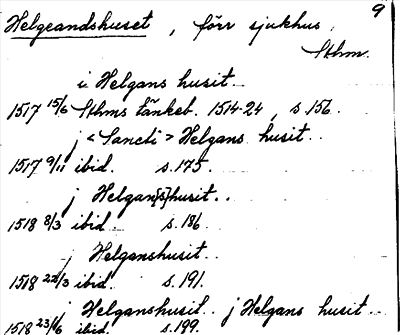 9
Helgeandshuset, förr sjukhus,
Sthm.
i Helgans husit..
1517 15/6 Sthms tänkeb. 1514-24, s. 156.
j <Sancti> Helgans husit..
1517 9/11 ibid. s. 175.
j Helgan[s]husit..
1518 8/3 ibid. s. 186.
j Helganshusit..
1518 22/3 ibid. s. 191.
j Helganshusit.. j Helgans husit..
1518 23/6 ibid. s. 199.